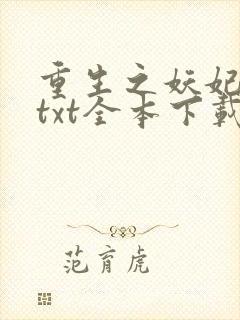 重生之妖妃
txt全本下载
范育虎